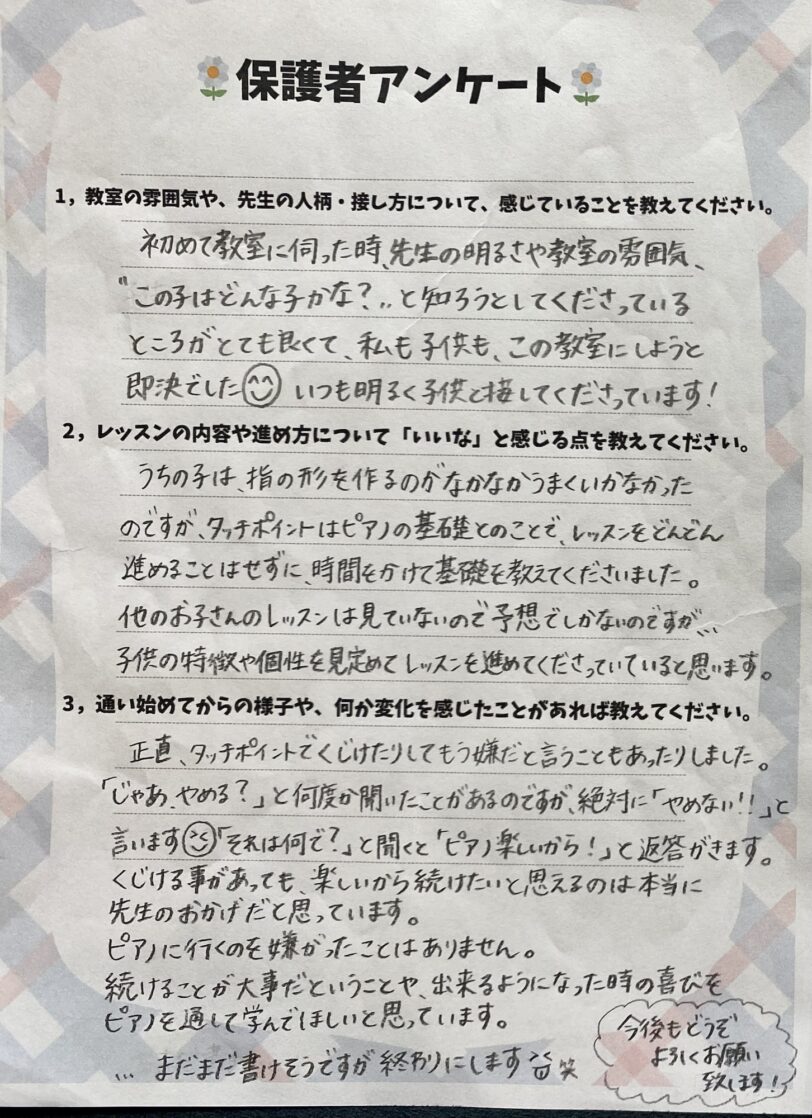 保護者アンケート
1，教室の雰囲気や、先生の人柄・接し方について、感じていることを教えてください。
初めて教室に伺った時、先生の明るさや教室の雰囲気、
"この子はどんな子かな？"と知ろうとしてくださっている
ところがとても良くて、私も子供も、この教室にしようと
即決でした いつも明るく子供と接してくださっています！
2，レッスンの内容や進め方について「いいな」と感じる点を教えてください。
うちの子は、指の形を作るのがなかなかうまくいかなかった
のですが、タッチポイントはピアノの基礎とのことで、レッスンをどんどん
進めることはせずに、時間をかけて基礎を教えてくださいました。
他のお子さんのレッスンは見ていないので予想でしかないのですが…
子供の特徴や個性を見定めてレッスンを進めてくださっていていると思います。
3，通い始めてからの様子や、何か変化を感じたことがあれば教えてください。
正直、タッチポイントでくじけたりしてもう嫌だと言うこともあったりしました。
「じゃあ、やめる？」と何度か聞いたことがあるのですが、絶対に「やめない!!」と
言います 「それは何で？」と聞くと「ピアノ楽しいから！」と返答がきます。
くじける事があっても、楽しいから続けたいと思えるのは本当に
先生のおかげだと思っています。
ピアノに行くのを嫌がったことはありません。
続けることが大事だということや、出来るようになった時の喜びを
ピアノを通して学んでほしいと思っています。
…まだまだ書けそうですが終わりにします 笑
今後もどうぞ
よろしくお願い
致します！